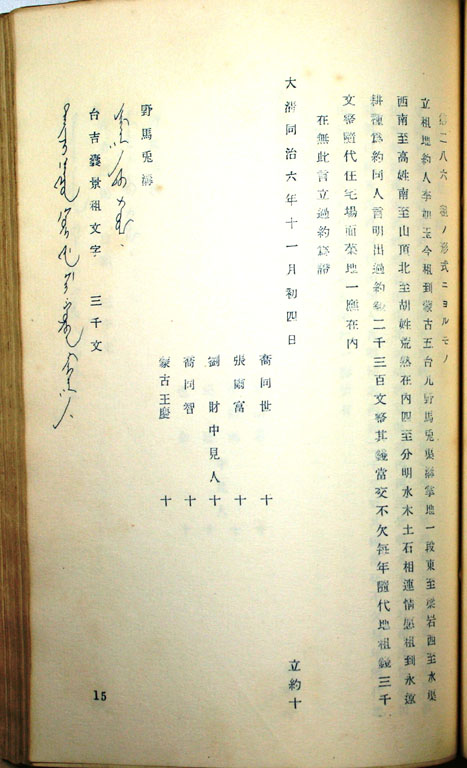 第二八六 租ノ形式ニヨルモノ
立租地約人李朝玉今租到蒙古五台九野馬兎吳海掌地一段東至梁岩西至水渠
西南至高姓南至山頂北至胡姓荒熟在內四至分明水木土石相連情愿租到永遠
耕種爲約同人言明出過約錢二千三百文齊其錢當交不欠每年隨代地租錢三千
文齊隨代住宅場面菜地一應在內
在無此言立過約爲證
大清同治六年十一月初四日
立約十
喬同世 十
張爾富 十
劉 財中見人 十
喬同智 十
蒙古王慶 十
野馬兎海
台吉嚢景祖文字 三千文
15